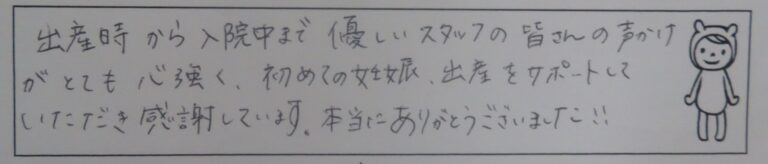 出産時から入院中まで優しいスタッフの皆さんの声かけ
がとても心強く、初めての妊娠、出産をサポートして
いただき感謝しています。本当にありがとうございました!!